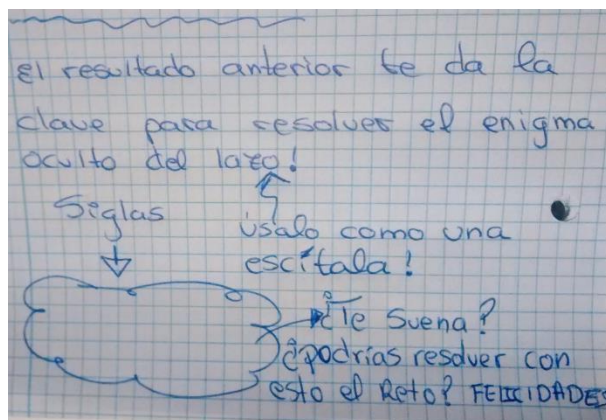 el resultado anterior te da la
clave para resolver el enigma
oculto del lazo!
Siglas
úsalo como una
escítala!
¿Te suena?
¿podrías resolver con
esto el Reto? FELICIDADES